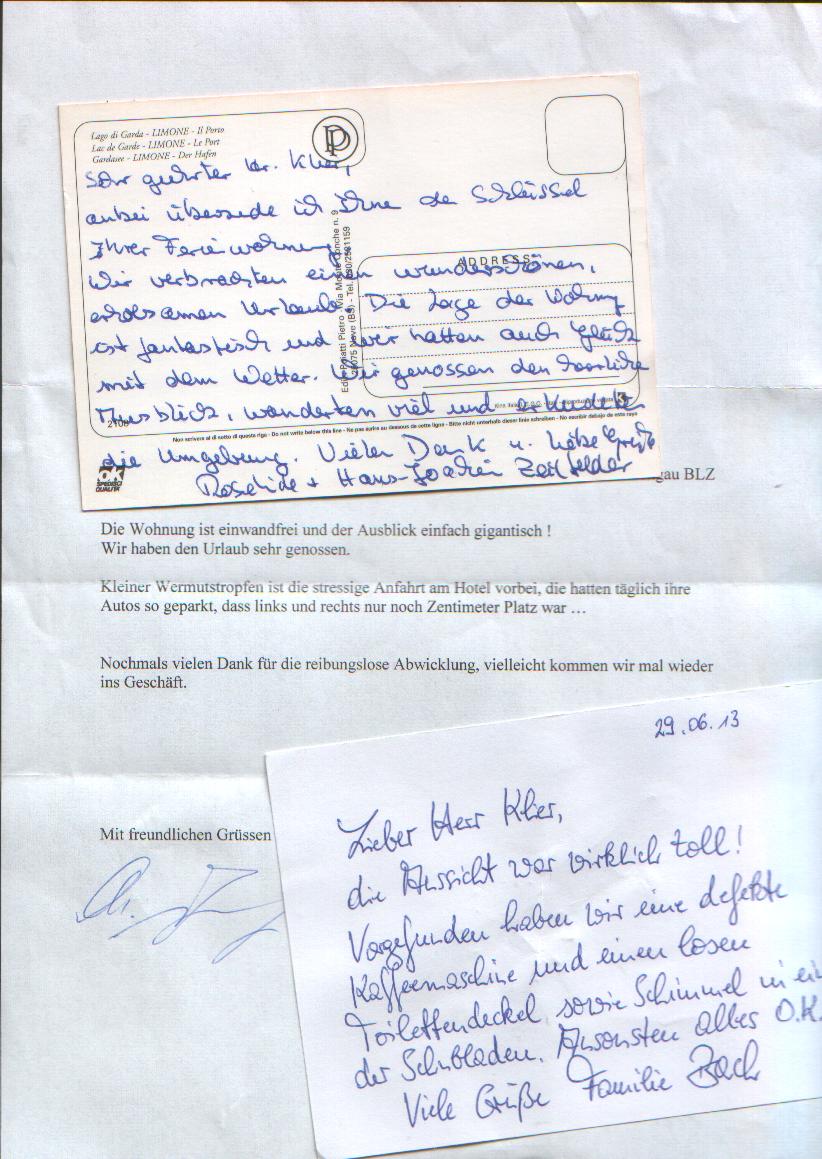 Lago di Garda - LIMONE - Il Porto
Lac de Garde - LIMONE - Le Port
Gardasee - LIMONE - Der Hafen
Sehr geehrter Hr. Klier,
anbei übersende ich Ihnen den Schlüssel
Ihrer Ferienwohnung.
Wir verbrachten einen wunderschönen,
erholsamen Urlaub. Die Lage der Wohnung
ist fantastisch und wir hatten auch Glück
mit dem Wetter. Wir genossen den herrlichen
Ausblick, wanderten viel und erkundeten
die Umgebung. Vielen Dank u. liebe Grüße
+ Hans-Joachim Zeitfelder
ADDRESS
2108
Non scrivere al di sotto di questa riga - Do not write below this line - Ne pas écrire au dessous de cette ligne - Bitte nicht unterhalb dieser linie schreiben - No escribir debajo de esta raya
ok
SPEDISCI
QUALITA'
gau BLZ
Die Wohnung ist einwandfrei und der Ausblick einfach gigantisch !
Wir haben den Urlaub sehr genossen.
Kleiner Wermutstropfen ist die stressige Anfahrt am Hotel vorbei, die hatten täglich ihre
Autos so geparkt, dass links und rechts nur noch Zentimeter Platz war ...
Nochmals vielen Dank für die reibungslose Abwicklung, vielleicht kommen wir mal wieder
ins Geschäft.
Mit freundlichen Grüssen
29.06.13
Lieber Herr Klier,
die Aussicht war wirklich toll!
Vorgefunden haben wir eine defekte
Kaffeemaschine und einen losen
Toilettendeckel, sowie Schimmel in ein
der Schubladen. Ansonsten alles O.K.
Viele Grüße Familie Bach